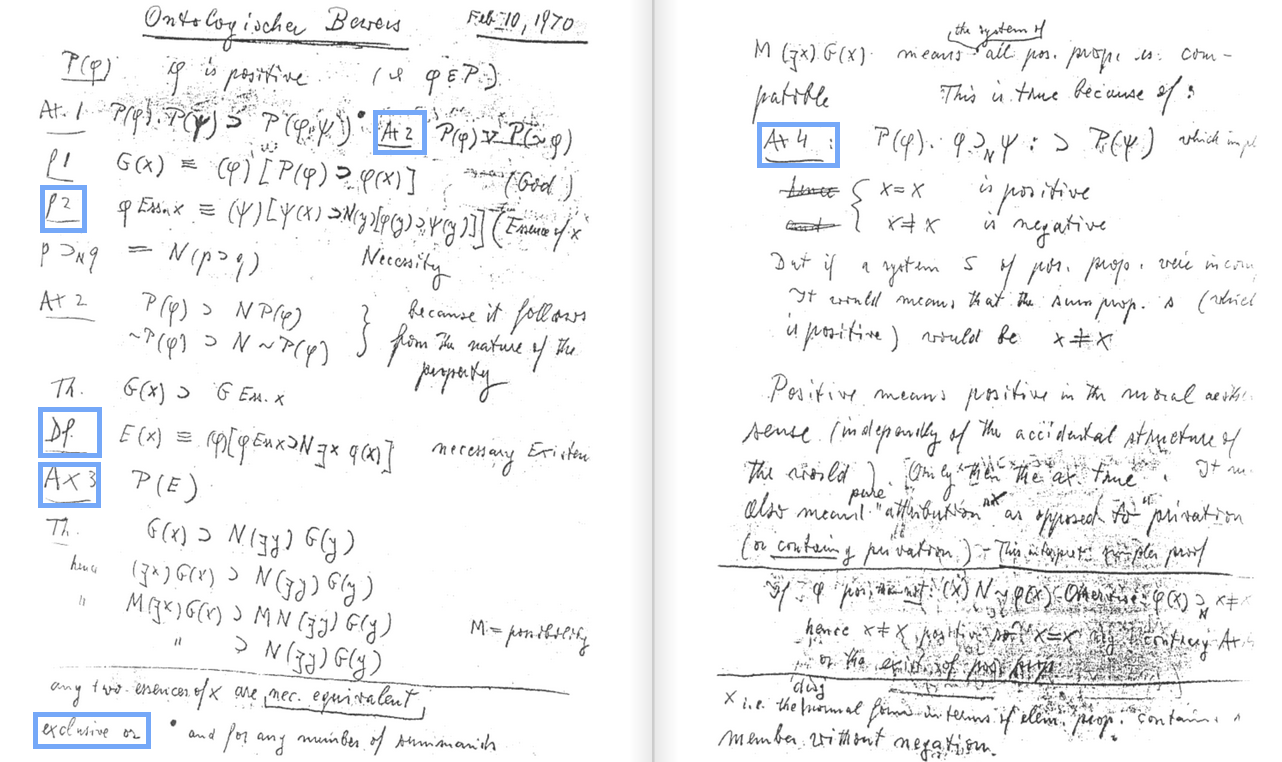 Ontologischer Beweis Feb. 10, 1970
P(φ) φ is positive (⊱ φ ε P.)
At. 1 P(φ). P(ψ) ⊃ P(φ.ψ) • At 2 P(φ) ∨ P(∼φ)
P1 G(x) ≡ (φ)[P(φ) ⊃ φ(x)] (God)
P2 φ Ess.x ≡ (ψ)[ψ(x) ⊃ N(y)[φ(y) ⊃ ψ(y)]] (Essence of x
p ⊃N q = N(p ⊃ q) Necessity
At 2 P(φ) ⊃ N P(φ) } because it follows
∼P(φ) ⊃ N ∼P(φ) from the nature of the
property
Th. G(x) ⊃ G Ess. x
Df. E(x) ≡ (φ)[φ Ess x ⊃ N ∃x φ(x)] necessary Existen
Ax 3 P(E)
Th. G(x) ⊃ N(∃y) G(y)
hence (∃x) G(x) ⊃ N(∃y) G(y)
" M(∃x) G(x) ⊃ M N(∃y) G(y) M = possibility
" ⊃ N(∃y) G(y)
any two essences of x are nec. equivalent
exclusive or • and for any number of summands
the system of
M(∃x) G(x) means all pos. prop. is com-
patible This is true because of:
At 4: P(φ). φ ⊃N ψ: ⊃ P(ψ) which impl
hence { x=x is positive
and x≠x is negative
But if a system S of pos. prop. were incom
It would mean that the sum prop. s (which
is positive) would be x≠x
Positive means positive in the moral aesthe
sense (independly of the accidental structure of
the world). Only then the ax. true. It m
also means pure "attribution" as opposed to "privation
(or containing privation.) – This interpret. simpler proof
If φ pos. (x) N ∼φ(x) – Otherwise: φ(x) ⊃N x≠
hence x≠x positive so x=x contrary At
or the exist. of pos. prop.
x i.e. the normal form in terms of elem. prop. contains
member without negation.